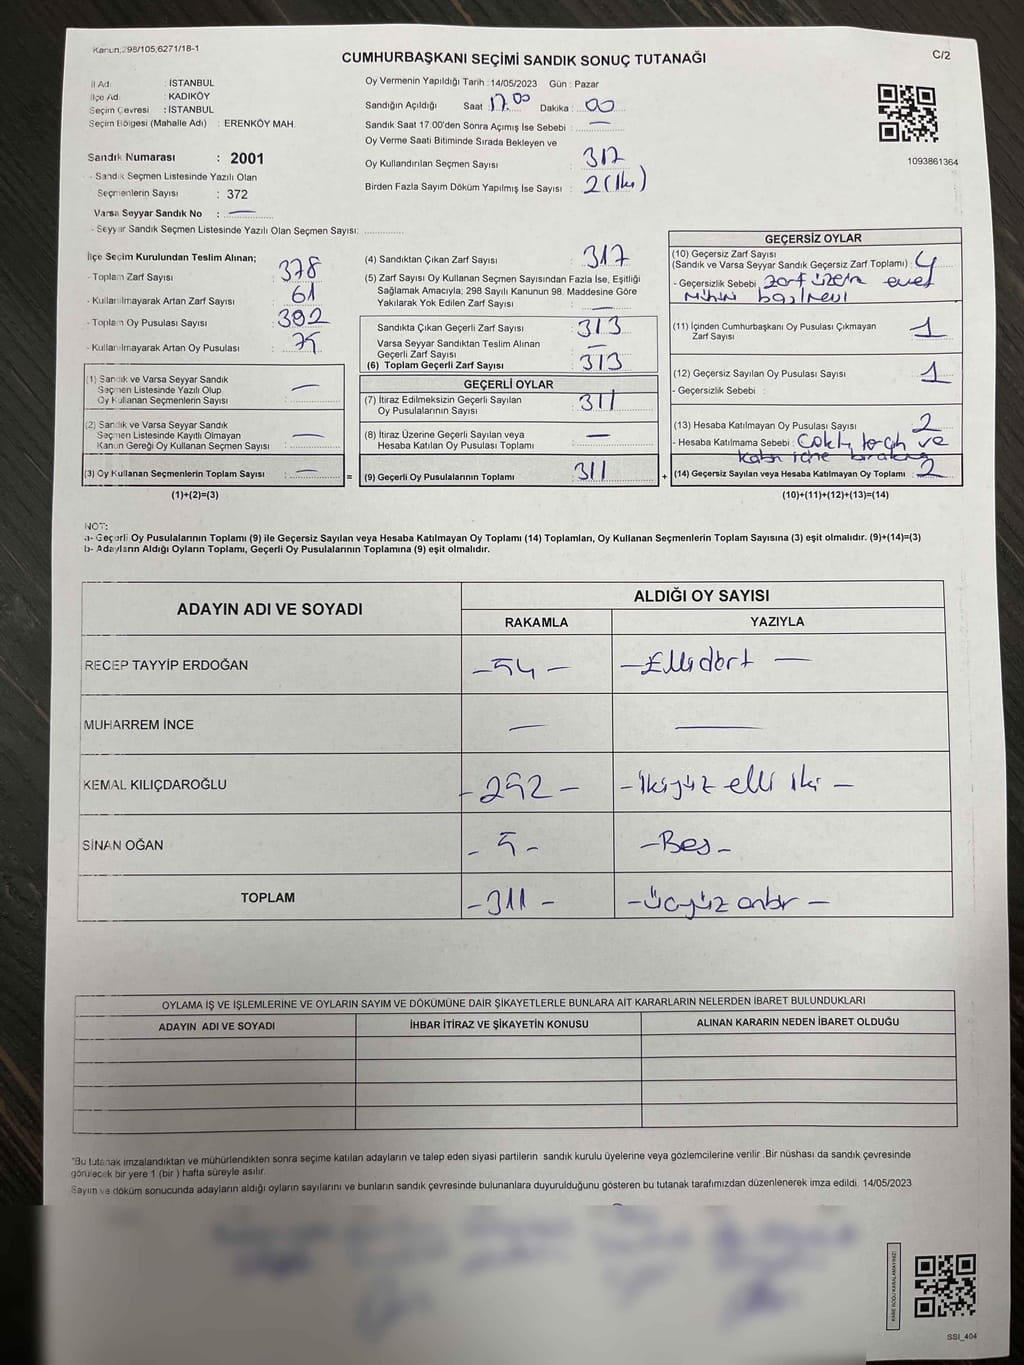 Kanun, 298/105,6271/18-1
CUMHURBAŞKANI SEÇİMİ SANDIK SONUÇ TUTANAĞI
C/2
İl Adı : İSTANBUL
İlçe Adı : KADIKÖY
Seçim Çevresi : İSTANBUL
Seçim Bölgesi (Mahalle Adı) : ERENKÖY MAH.
Sandık Numarası : 2001
- Sandık Seçmen Listesinde Yazılı Olan
Seçmenlerin Sayısı : 372
Varsa Seyyar Sandık No : —
- Seyyar Sandık Seçmen Listesinde Yazılı Olan Seçmen Sayısı:
Oy Vermenin Yapıldığı Tarih : 14/05/2023 Gün : Pazar
Sandığın Açıldığı Saat : 17.00 Dakika : 00
Sandık Saat 17:00'den Sonra Açımış İse Sebebi : —
Oy Verme Saati Bitiminde Sırada Bekleyen ve
Oy Kullandırılan Seçmen Sayısı : 317
Birden Fazla Sayım Döküm Yapılmış İse Sayısı : 2 (İki)
1093861364
İlçe Seçim Kurulundan Teslim Alınan;
- Toplam Zarf Sayısı : 378
- Kullanılmayarak Artan Zarf Sayısı : 61
- Toplam Oy Pusulası Sayısı : 392
- Kullanılmayarak Artan Oy Pusulası : 75
(1) Sandık ve Varsa Seyyar Sandık
Seçmen Listesinde Yazılı Olup
Oy Kullanan Seçmenlerin Sayısı : —
(2) Sandık ve Varsa Seyyar Sandık
Seçmen Listesinde Kayıtlı Olmayan
Kanun Gereği Oy Kullanan Seçmen Sayısı : —
(3) Oy Kullanan Seçmenlerin Toplam Sayısı : — =
(1)+(2)=(3)
(4) Sandıktan Çıkan Zarf Sayısı : 317
(5) Zarf Sayısı Oy Kullanan Seçmen Sayısından Fazla İse, Eşitliği
Sağlamak Amacıyla; 298 Sayılı Kanunun 98. Maddesine Göre
Yakılarak Yok Edilen Zarf Sayısı : —
Sandıkta Çıkan Geçerli Zarf Sayısı : 313
Varsa Seyyar Sandıktan Teslim Alınan
Geçerli Zarf Sayısı : —
(6) Toplam Geçerli Zarf Sayısı : 313
GEÇERLİ OYLAR
(7) İtiraz Edilmeksizin Geçerli Sayılan
Oy Pusulalarının Sayısı : 311
(8) İtiraz Üzerine Geçerli Sayılan veya
Hesaba Katılan Oy Pusulası Toplamı : —
(9) Geçerli Oy Pusulalarının Toplamı : 311 +
GEÇERSİZ OYLAR
(10) Geçersiz Zarf Sayısı
(Sandık ve Varsa Seyyar Sandık Geçersiz Zarf Toplamı) : 4
- Geçersizlik Sebebi : zarf üzerine evet
mührü
(11) İçinden Cumhurbaşkanı Oy Pusulası Çıkmayan
Zarf Sayısı : 1
(12) Geçersiz Sayılan Oy Pusulası Sayısı : 1
- Geçersizlik Sebebi :
(13) Hesaba Katılmayan Oy Pusulası Sayısı : 2
- Hesaba Katılmama Sebebi : Çoklu tercih ve
(14) Geçersiz Sayılan veya Hesaba Katılmayan Oy Toplamı : 2
(10)+(11)+(12)+(13)=(14)
NOT:
a- Geçerli Oy Pusulalarının Toplamı (9) ile Geçersiz Sayılan veya Hesaba Katılmayan Oy Toplamı (14) Toplamları, Oy Kullanan Seçmenlerin Toplam Sayısına (3) eşit olmalıdır. (9)+(14)=(3)
b- Adayların Aldığı Oyların Toplamı, Geçerli Oy Pusulalarının Toplamına (9) eşit olmalıdır.
ADAYIN ADI VE SOYADI
ALDIĞI OY SAYISI
RAKAMLA YAZIYLA
RECEP TAYYİP ERDOĞAN -54- -Ellidört-
MUHARREM İNCE — —
KEMAL KILIÇDAROĞLU -252- -İkiyüz elli iki-
SİNAN OĞAN -5- -Beş-
TOPLAM -311- -Üçyüz onbir-
OYLAMA İŞ VE İŞLEMLERİNE VE OYLARIN SAYIM VE DÖKÜMÜNE DAİR ŞİKAYETLERLE BUNLARA AİT KARARLARIN NELERDEN İBARET BULUNDUKLARI
ADAYIN ADI VE SOYADI İHBAR İTİRAZ VE ŞİKAYETİN KONUSU ALINAN KARARIN NEDEN İBARET OLDUĞU
"Bu tutanak imzalandıktan ve mühürlendikten sonra seçime katılan adayların ve talep eden siyasi partilerin sandık kurulu üyelerine veya gözlemcilerine verilir .Bir nüshası da sandık çevresinde
görülecek bir yere 1 (bir ) hafta süreyle asılır.
Sayım ve döküm sonucunda adayların aldığı oyların sayılarını ve bunların sandık çevresinde bulunanlara duyurulduğunu gösteren bu tutanak tarafımızdan düzenlenerek imza edildi. 14/05/2023
KARE KODU KARALAMAYINIZ!
SSI_404